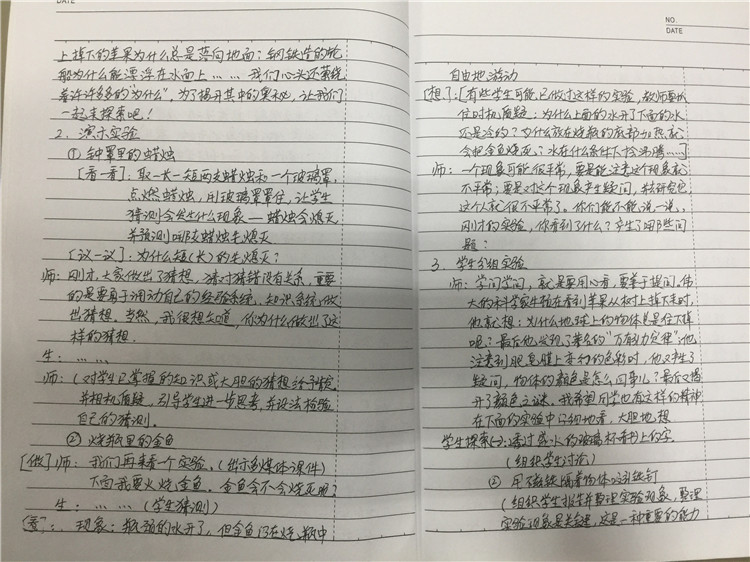 DATE
上掉下的苹果为什么总是落向地面；钢铁造的轮
船为什么能漂浮在水面上……我们心头还萦绕
着许许多多的"为什么"，为了揭开其中的奥秘，让我们
一起来探索吧！
2、演示实验
① 钟罩里的蜡烛
[看一看]：取一长一短两支蜡烛和一个玻璃罩，
点燃蜡烛，用玻璃罩罩住，让学生
猜测会发生什么现象—蜡烛会熄灭
并预测哪支蜡烛先熄灭
[议一议]：为什么短(长)的先熄灭？
师：刚才，大家做出了猜想，猜对猜错没有关系，重要
的是要勇于调动自己的经验系统、知识系统，做
出猜想。当然，我很想知道，你为什么做出了这
样的猜想.
生：……
师：(对学生已掌握的知识或大胆的猜想给予肯定，
并相机质疑，引导学生进一步思考，并设法检验
自己的猜测。
② 烧瓶里的金鱼
[做] 师：我们再来看一个实验。(出示多媒体课件)
下面我要火烧金鱼。金鱼会不会烧死呢？
生：……(学生猜测)
[看]：. 现象：瓶颈的水开了，但金鱼仍在烧瓶中
NO.
DATE
自由地游动
[想]：[有些学生可能已做过这样的实验，教师要抓
住时机质疑：为什么上面的水开了下面的水
还是冷的？为什么放在烧瓶的底部加热就
会把金鱼烧死？水在什么条件下才会沸腾……]
师：一个现象可能很平常，要是能注意这个现象就
不平常；要是对这个现象产生疑问，去研究它，
这个人就很不平常了。你们能不能说一说，
刚才的实验，你看到了什么？产生了哪些问
题？
3、学生分组实验
师：学问学问，就是要用心看，要善于提问。伟
大的科学家牛顿在看到苹果从树上掉下来时，
他就想：为什么地球上的物体总是往下掉
呢？最后他发现了著名的"万有引力定律"；他
注意到肥皂膜上变幻的色彩时，他又产生了
疑问，物体的颜色是怎么回事儿？最后又揭
开了颜色之谜。我希望同学也有这样的精神
在下面的实验中仔细地看，大胆地想
学生探索(一)：通过盛水的玻璃杯看书上的字.
(组织学生讨论)
② 用磁铁隔着物体吸引铁钉
(组织学生报告并整理实验现象，整理
实验现象是关键，这是一种重要的能力